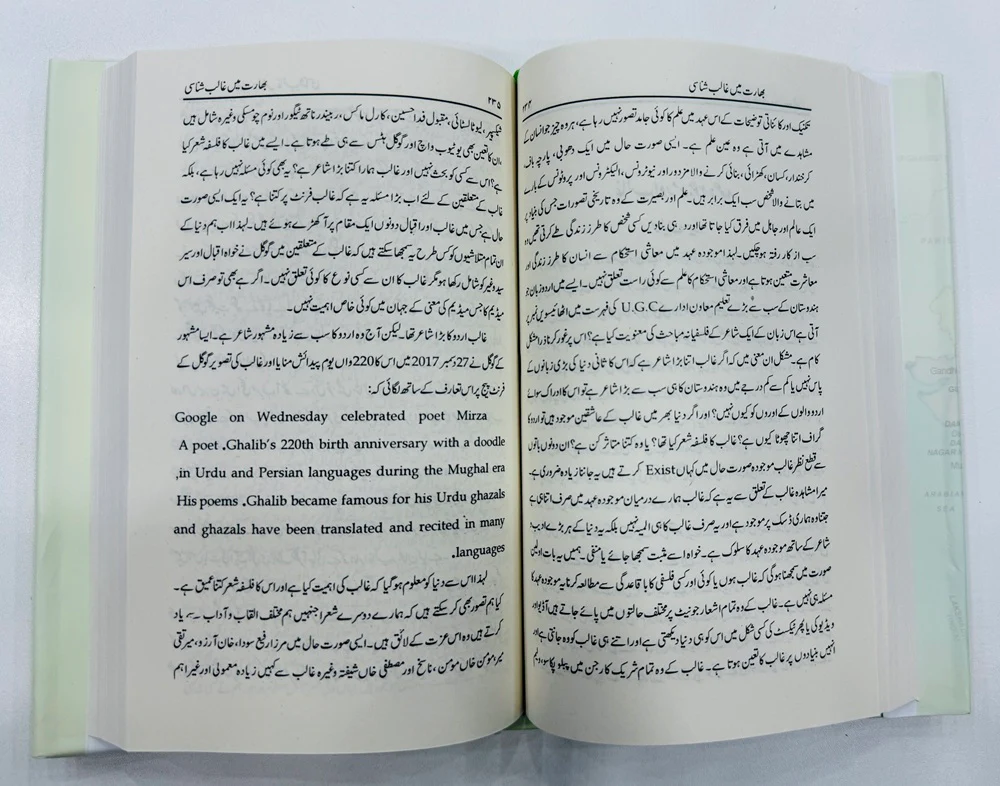 بھارت میں غالب شناسی
۲۳۴
تکنیک اور کائناتی توضیحات کے اس عہد میں علم کا کوئی جامد تصور نہیں رہا ہے، ہر وہ چیز جو انسان کے
مشاہدے میں آتی ہے وہ عین علم ہے۔ ایسی صورت حال میں ایک دھوبی، پارچہ باف،
کرخندار، کسان، کھڑائی، بنائی کرنے والا مزدور اور نیوٹرونس، الیکٹرونس اور پروٹونس کے بارے
میں بتانے والا شخص سب ایک برابر ہیں۔ علم اور بصیرت کے وہ تاریخی تصورات جس کی بنیاد پر
ایک عالم اور جاہل میں فرق کیا جاتا تھا اور وہی بنیادیں کسی شخص کا طرز زندگی طے کرتی تھیں وہ
سب از کار رفتہ ہو چکیں۔ لہٰذا موجودہ عہد میں معاشی استحکام سے انسان کا طرز زندگی اور
معاشرت متعین ہوتا ہے اور معاشی استحکام کا علم سے کوئی راست تعلق نہیں۔ ایسے میں اردو زبان جو
ہندوستان کے سب سے بڑے تعلیم معاون ادارے U.G.C کی فہرست میں اٹھائیسویں نمبر پر
آتی ہے اس زبان کے ایک شاعر کے فلسفیانہ مباحث کی معنویت کیا ہے؟ اس پر غور کرنا ذرا مشکل
کام ہے۔ مشکل ان معنی میں کہ اگر غالب اتنا بڑا شاعر ہے کہ اس کا ثانی دنیا کی بڑی زبانوں کے
پاس نہیں یا کم سے کم درجے میں وہ ہندوستان کا ہی سب سے بڑا شاعر ہے تو اس کا ادراک سوائے
اردو والوں کے اوروں کو کیوں نہیں؟ اور اگر دنیا بھر میں غالب کے عاشقین موجود ہیں تو اردو کا
گراف اتنا چھوٹا کیوں ہے؟ غالب کا فلسفہ شعر کیا تھا؟ یا وہ کتنا متاثر کن ہے؟ ان دونوں باتوں
سے قطع نظر غالب موجودہ صورت حال میں کہاں Exist کرتے ہیں یہ جاننا زیادہ ضروری ہے۔
میرا مشاہدہ غالب کے تعلق سے یہ ہے کہ غالب ہمارے درمیان موجودہ عہد میں صرف اتنا ہی ہے
جتنا وہ ہماری ڈسک پر موجود ہے اور یہ صرف غالب کا ہی المیہ نہیں بلکہ یہ دنیا کے ہر بڑے ادیب و
شاعر کے ساتھ موجودہ عہد کا سلوک ہے۔ خواہ اسے مثبت سمجھا جائے یا منفی۔ ہمیں یہ بات اولین
صورت میں سمجھنا ہوگی کہ غالب ہوں یا کوئی اور کسی فلسفی کا باقاعدگی سے مطالعہ کرنا یہ موجودہ عہد کا
مسئلہ ہی نہیں ہے۔ غالب کے وہ تمام اشعار جو نیٹ پر مختلف حالتوں میں پائے جاتے ہیں آڈیو اور
ویڈیو کی یا پھر ٹیکسٹ کی کسی شکل میں اس کو ہی دنیا دیکھتی ہے اور اتنے ہی غالب کو وہ جانتی ہے اور
انہیں بنیادوں پر غالب کا تعین ہوتا ہے۔ غالب کے وہ تمام شریک کار جن میں پیبلو پکاسو، ولیم
بھارت میں غالب شناسی
۲۳۵
شیکسپیر، لیو ٹالسٹائی، مقبول فدا حسین، کارل مارکس، ربیندر ناتھ ٹیگور اور نوم چومسکی وغیرہ شامل ہیں
،ان کا تعین بھی یوٹیوب واچ اور گوگل ہٹس سے ہی طے ہوتا ہے۔ ایسے میں غالب کا فلسفہ شعر کیا
ہے؟ اس سے کسی کو بحث نہیں اور غالب ہمارا کتنا بڑا شاعر ہے؟ یہ بھی کوئی مسئلہ نہیں رہا ہے، بلکہ
غالب کے متعلقین کے لئے اب بڑا مسئلہ یہ ہے کہ غالب فرنٹ پر کتنا ہے؟ یہ ایک ایسی صورت
حال ہے جس میں غالب اور اقبال دونوں ایک مقام پر آ کھڑے ہوئے ہیں۔ لہٰذا اب ہم دنیا کے
ان تمام متلاشیوں کو کس طرح یہ سمجھا سکتے ہیں کہ غالب کے متعلقین میں گوگل نے خواہ اقبال اور سر
سید وغیرہ کو شامل رکھا ہو مگر غالب کا ان سے کسی نوع کا کوئی تعلق نہیں۔ اگر ہے بھی تو صرف اس
میڈیم کا جس میڈیم کی معنی کے جہان میں کوئی خاص اہمیت نہیں۔
غالب اردو کا بڑا شاعر تھا۔ لیکن آج وہ اردو کا سب سے زیادہ مشہور شاعر ہے۔ ایسا مشہور
کے گوگل نے 27 دسمبر 2017 میں اس کا 220 واں یوم پیدائش منایا اور غالب کی تصویر گوگل کے
فرنٹ پیج پر اس تعارف کے ساتھ لگائی کہ:
Google on Wednesday celebrated poet Mirza
A poet .Ghalib's 220th birth anniversary with a doodle
,in Urdu and Persian languages during the Mughal era
His poems .Ghalib became famous for his Urdu ghazals
and ghazals have been translated and recited in many
.languages
لہٰذا اس سے دنیا کو معلوم ہو گیا کہ غالب کی اہمیت کیا ہے اور اس کا فلسفہ شعر کتنا عمیق ہے۔
کیا ہم تصور بھی کر سکتے ہیں کہ ہمارے دوسرے شعرا جنہیں ہم مختلف القاب و آداب سے یاد
کرتے ہیں وہ اس عزت کے لائق ہیں۔ ایسی صورت حال میں مرزا رفیع سودا، خان آرزو، میر تقی
میر، مومن خاں مومن، ناسخ اور مصطفیٰ خاں شیفتہ وغیرہ غالب سے کہیں زیادہ معمولی اور غیر اہم